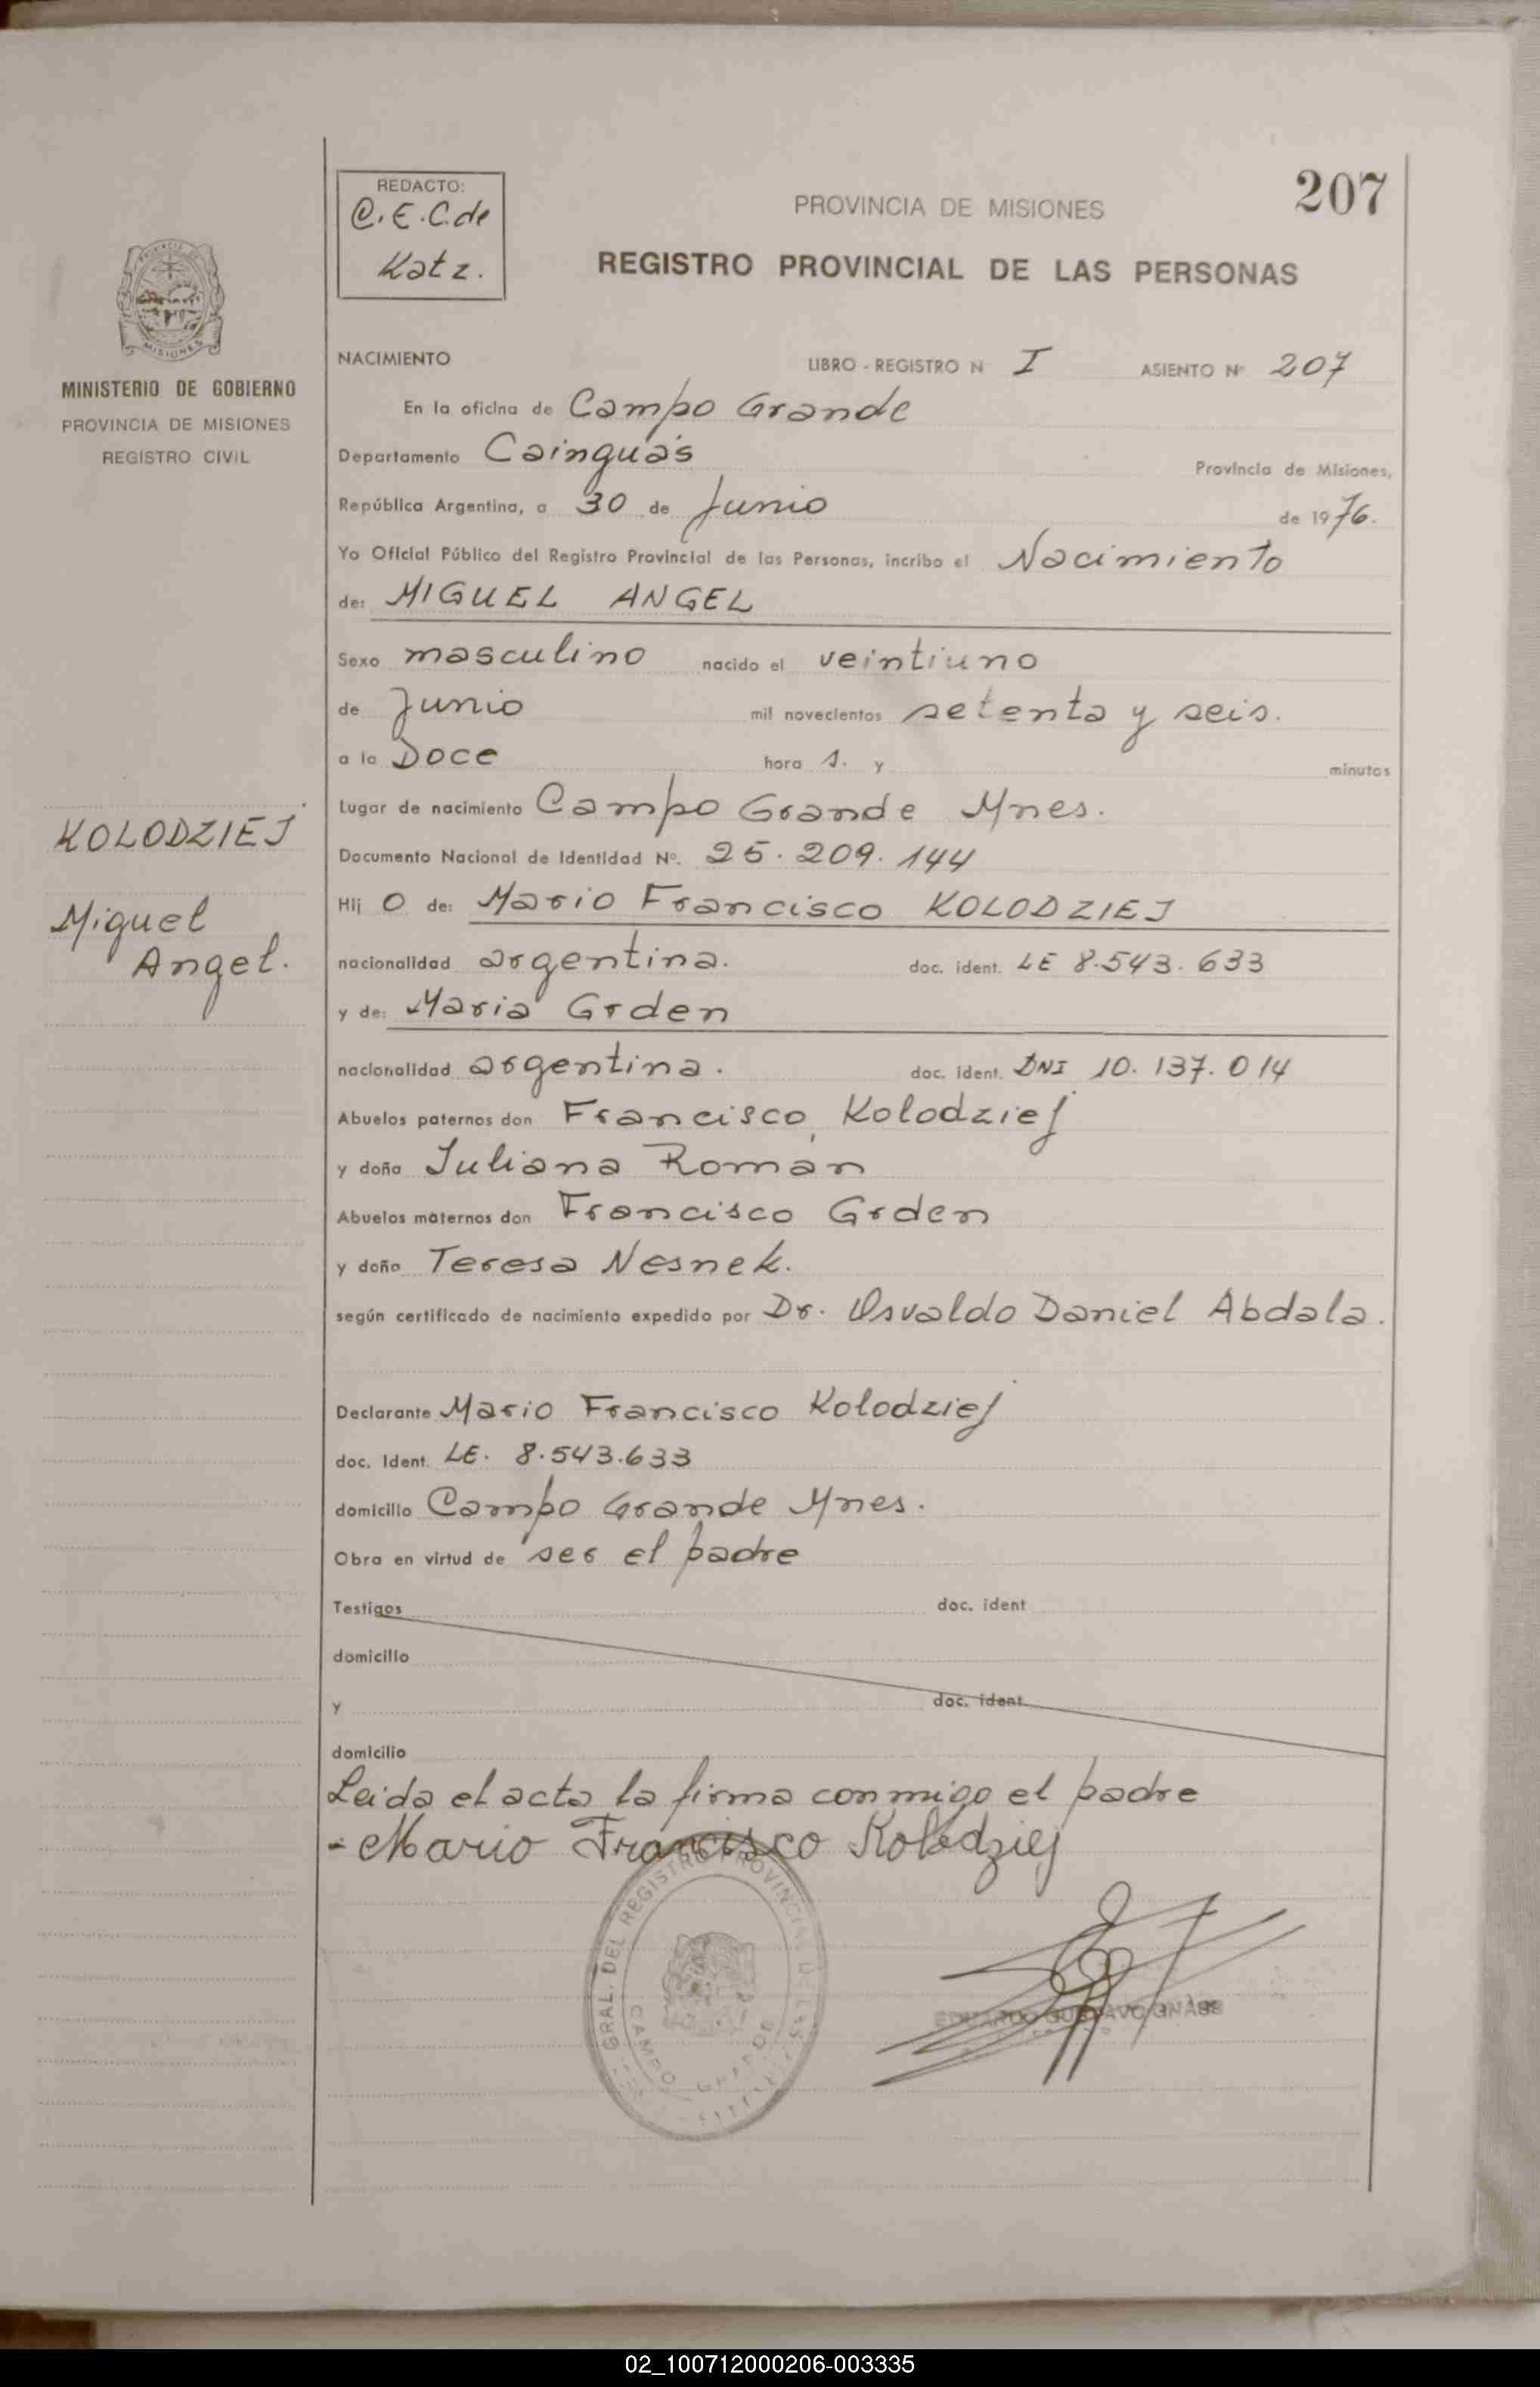 REDACTO:
C. E. C. de
Katz.
PROVINCIA DE MISIONES
207
REGISTRO PROVINCIAL DE LAS PERSONAS
MISIONES
MINISTERIO DE GOBIERNO
PROVINCIA DE MISIONES
REGISTRO CIVIL
NACIMIENTO LIBRO - REGISTRO N I ASIENTO Nº 207
En la oficina de Campo Grande
Departamento Cainguás Provincia de Misiones,
República Argentina, a 30 de Junio de 1976.
Yo Oficial Público del Registro Provincial de las Personas, incribo el Nacimiento
de: MIGUEL ANGEL
Sexo masculino nacido el veintiuno
de Junio mil novecientos setenta y seis.
a la Doce hora s. y minutos
Lugar de nacimiento Campo Grande Mnes.
KOLODZIEJ
Miguel
Angel.
Documento Nacional de Identidad Nº. 25.209.144
Hij o de: Mario Francisco KOLODZIEJ
nacionalidad argentina. doc. ident. LE 8.543.633
y de: Maria Grden
nacionalidad argentina. doc. ident. DNI 10.137.014
Abuelos paternos don Francisco Kolodziej
y doña Juliana Román
Abuelos maternos don Francisco Grden
y doña Teresa Nesnek.
según certificado de nacimiento expedido por Dr. Osvaldo Daniel Abdala.
Declarante Mario Francisco Kolodziej
doc. Ident. LE. 8.543.633
domicilio Campo Grande Mnes.
Obra en virtud de ser el padre
Testigos doc. ident
domicilio
y doc. ident
domicilio
Leida el acta la firma conmigo el padre
- Mario Francisco Kolodziej
GRAL. DEL REGISTRO PROVINCIAL DE LAS
CAMPO GRANDE
EDUARDO GUSTAVO
02_100712000206-003335